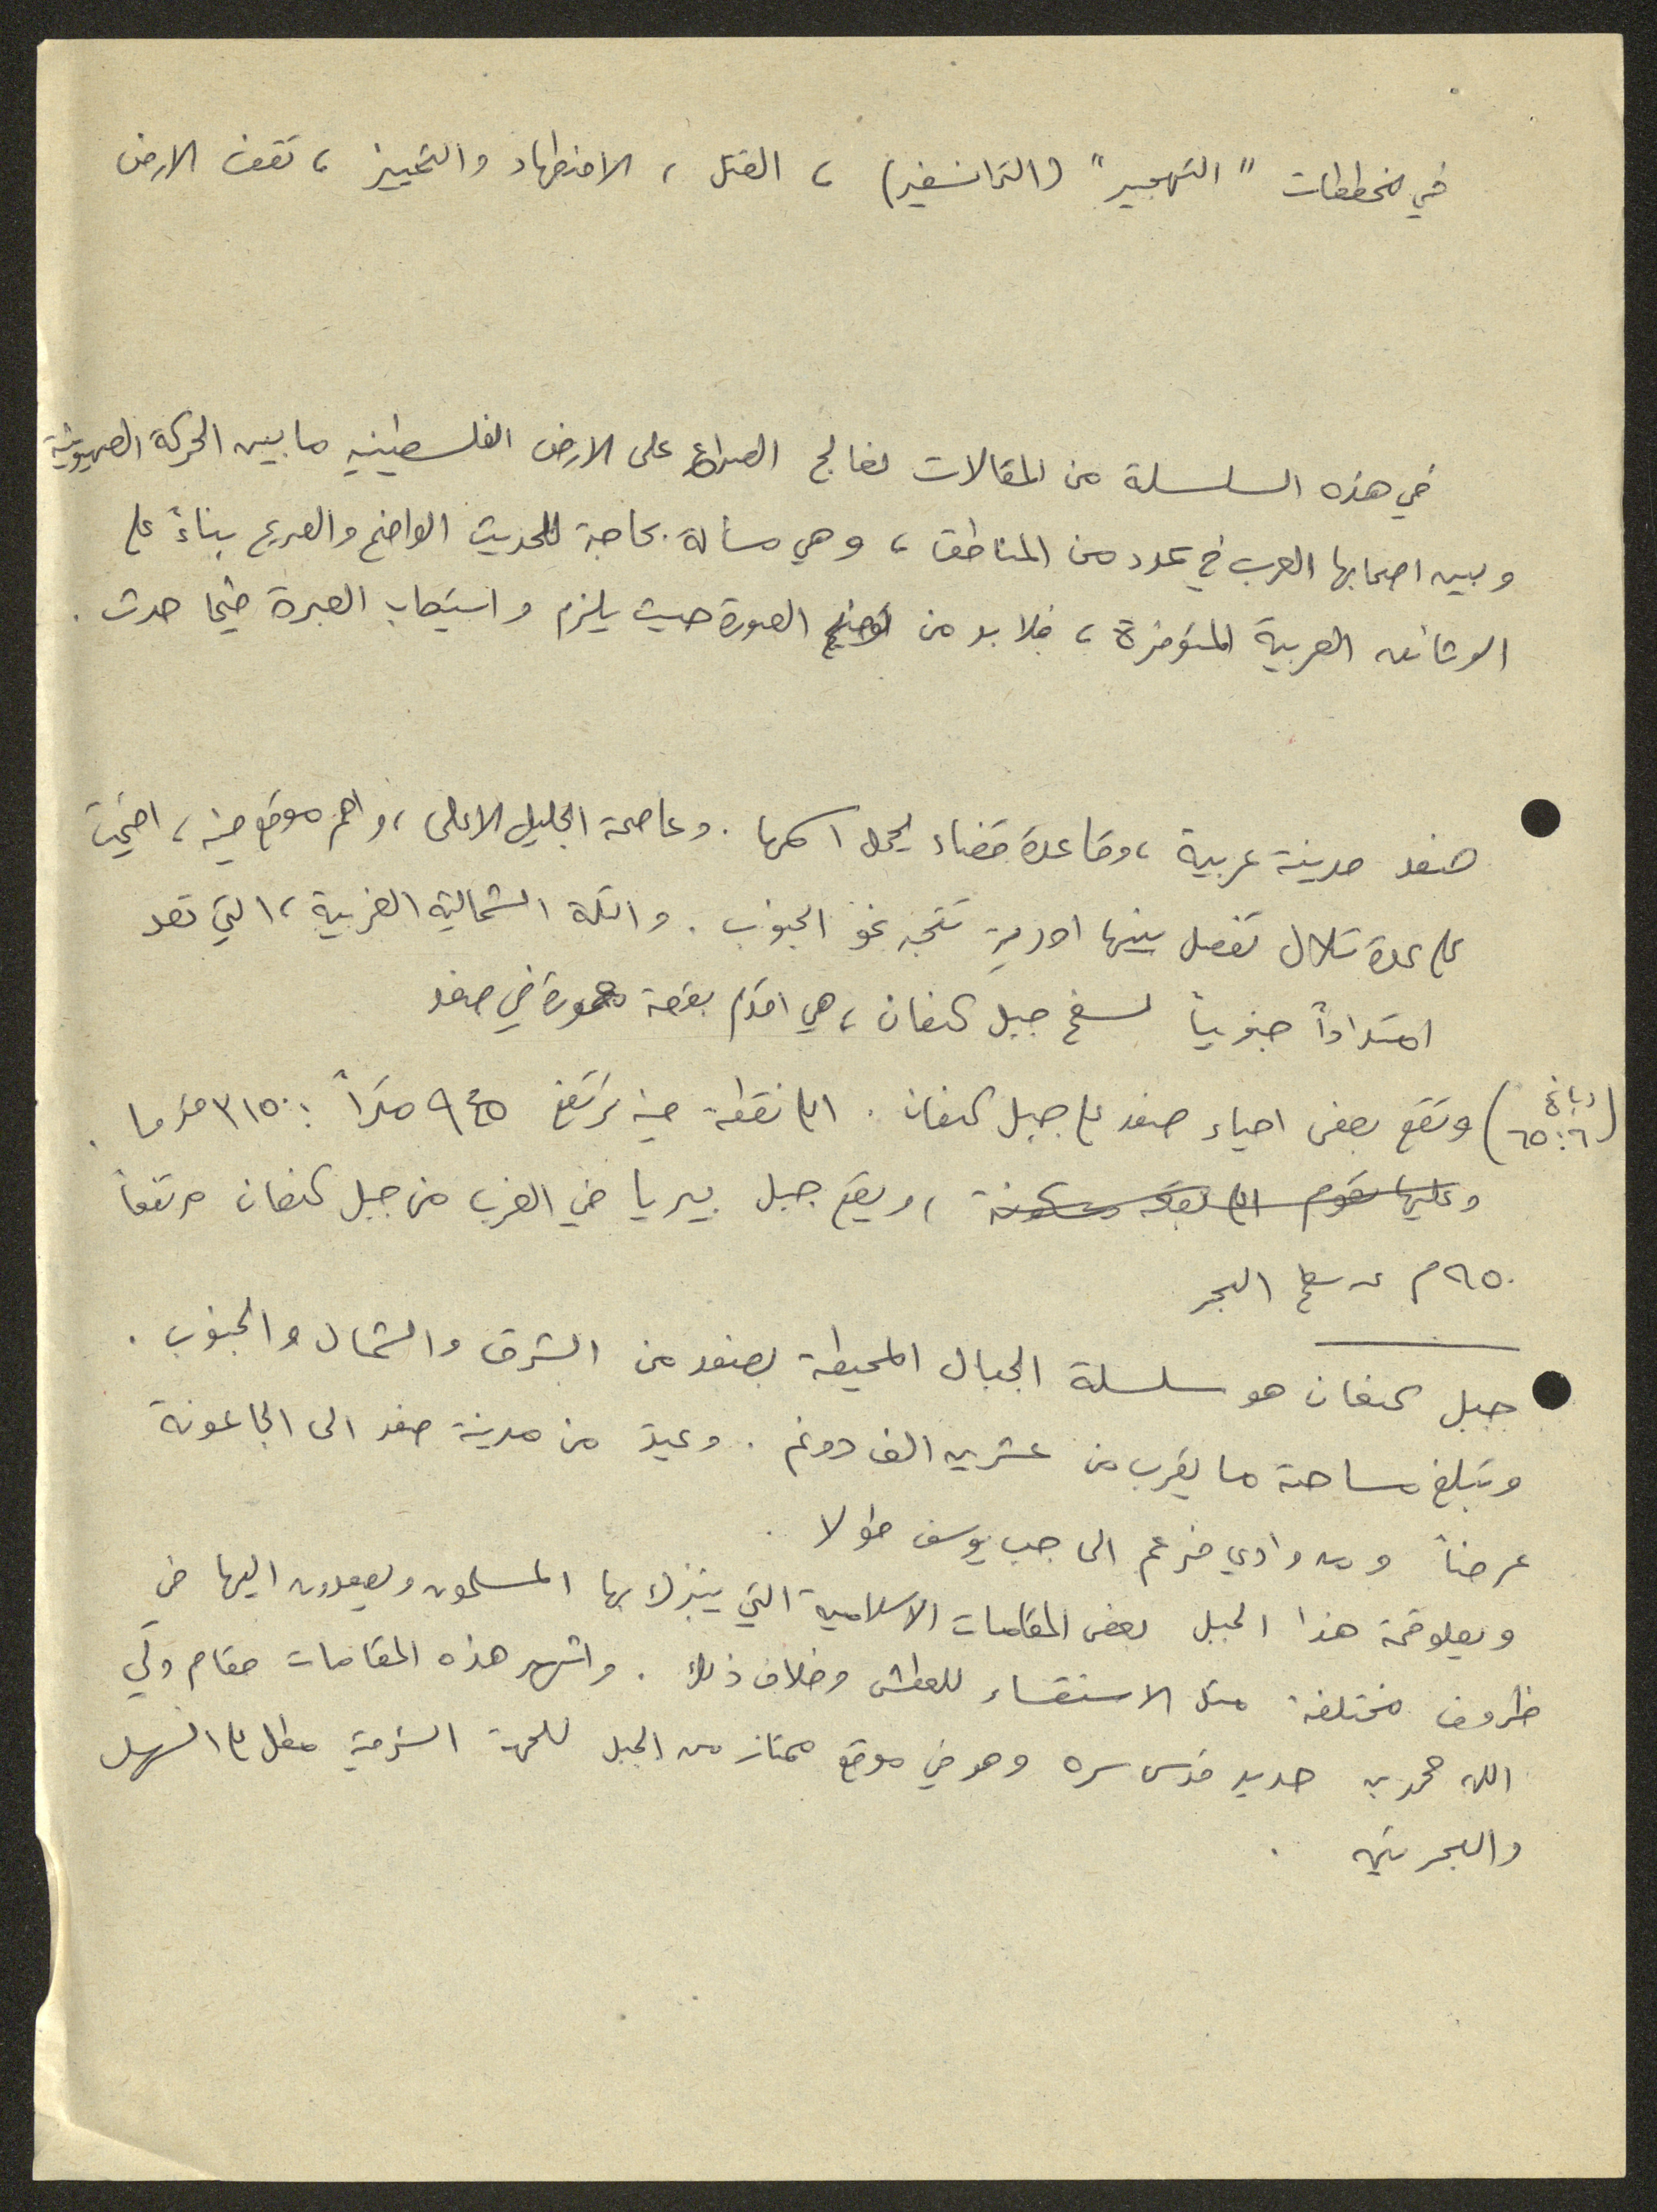 في مخططات "التهجير" (الترانسفير) ، القتل ، الاضطهاد والتمييز ، تقف الارض
في هذه السلسلة من المقالات نعالج الصراع على الارض الفلسطينيه ما بين الحركة الصهيونية
وبين اصحابها العرب في عدد من المناطق ، وهي مسألة بحاجة للحديث الواضح والصريح بناءً على
الوثائق العربية المتوفرة ، فلا بد من توضيح الصورة حيث يلزم واستيعاب العبرة فيما حدث .
صفد مدينة عربية ، وقاعدة قضاء يحمل اسمها . وعاصمة الجليل الاعلى ، واهم موقع فيه ، اقيمت
على عدة تلال تفصل بينها اودية تتجه نحو الجنوب . والتلة الشمالية الغربية ، التي تعد
امتداداً جنوبياً لسفح جبل كنعان ، هي اقدم بقعة معمورة في صفد
(دباغ ٦ : ٦٥) وتقع بعض احياء صفد على جبل كنعان . اعلى نقطة فيه ترتفع متراً : ٣١٥٠ قدما .
وعليها تقوم اعلى بقعة مسكونة ، ويقع جبل بيريا في الغرب من جبل كنعان مرتفعاً
٩٥٠ م عن سطح البحر
جبل كنعان هو سلسلة الجبال المحيطة بصفد من الشرق والشمال والجنوب .
وتبلغ مساحته ما يقرب من عشرين الف دونم . ويمتد من مدينة صفد الى الجاعونة
عرضاً ومن وادي فرعم الى جب يوسف طولا .
ويعلو قمة هذا الجبل بعض المقامات الاسلامية التي يتبرك بها المسلمون ويصعدون اليها في
ظروف مختلفة مثل الاستسقاء للعطش وخلاف ذلك . واشهر هذه المقامات مقام ولي
الله محمد بن حديد قدس سره وهو في موقع ممتاز من الجبل للجهة الشرقية مطل على السهل
والبحرتين .